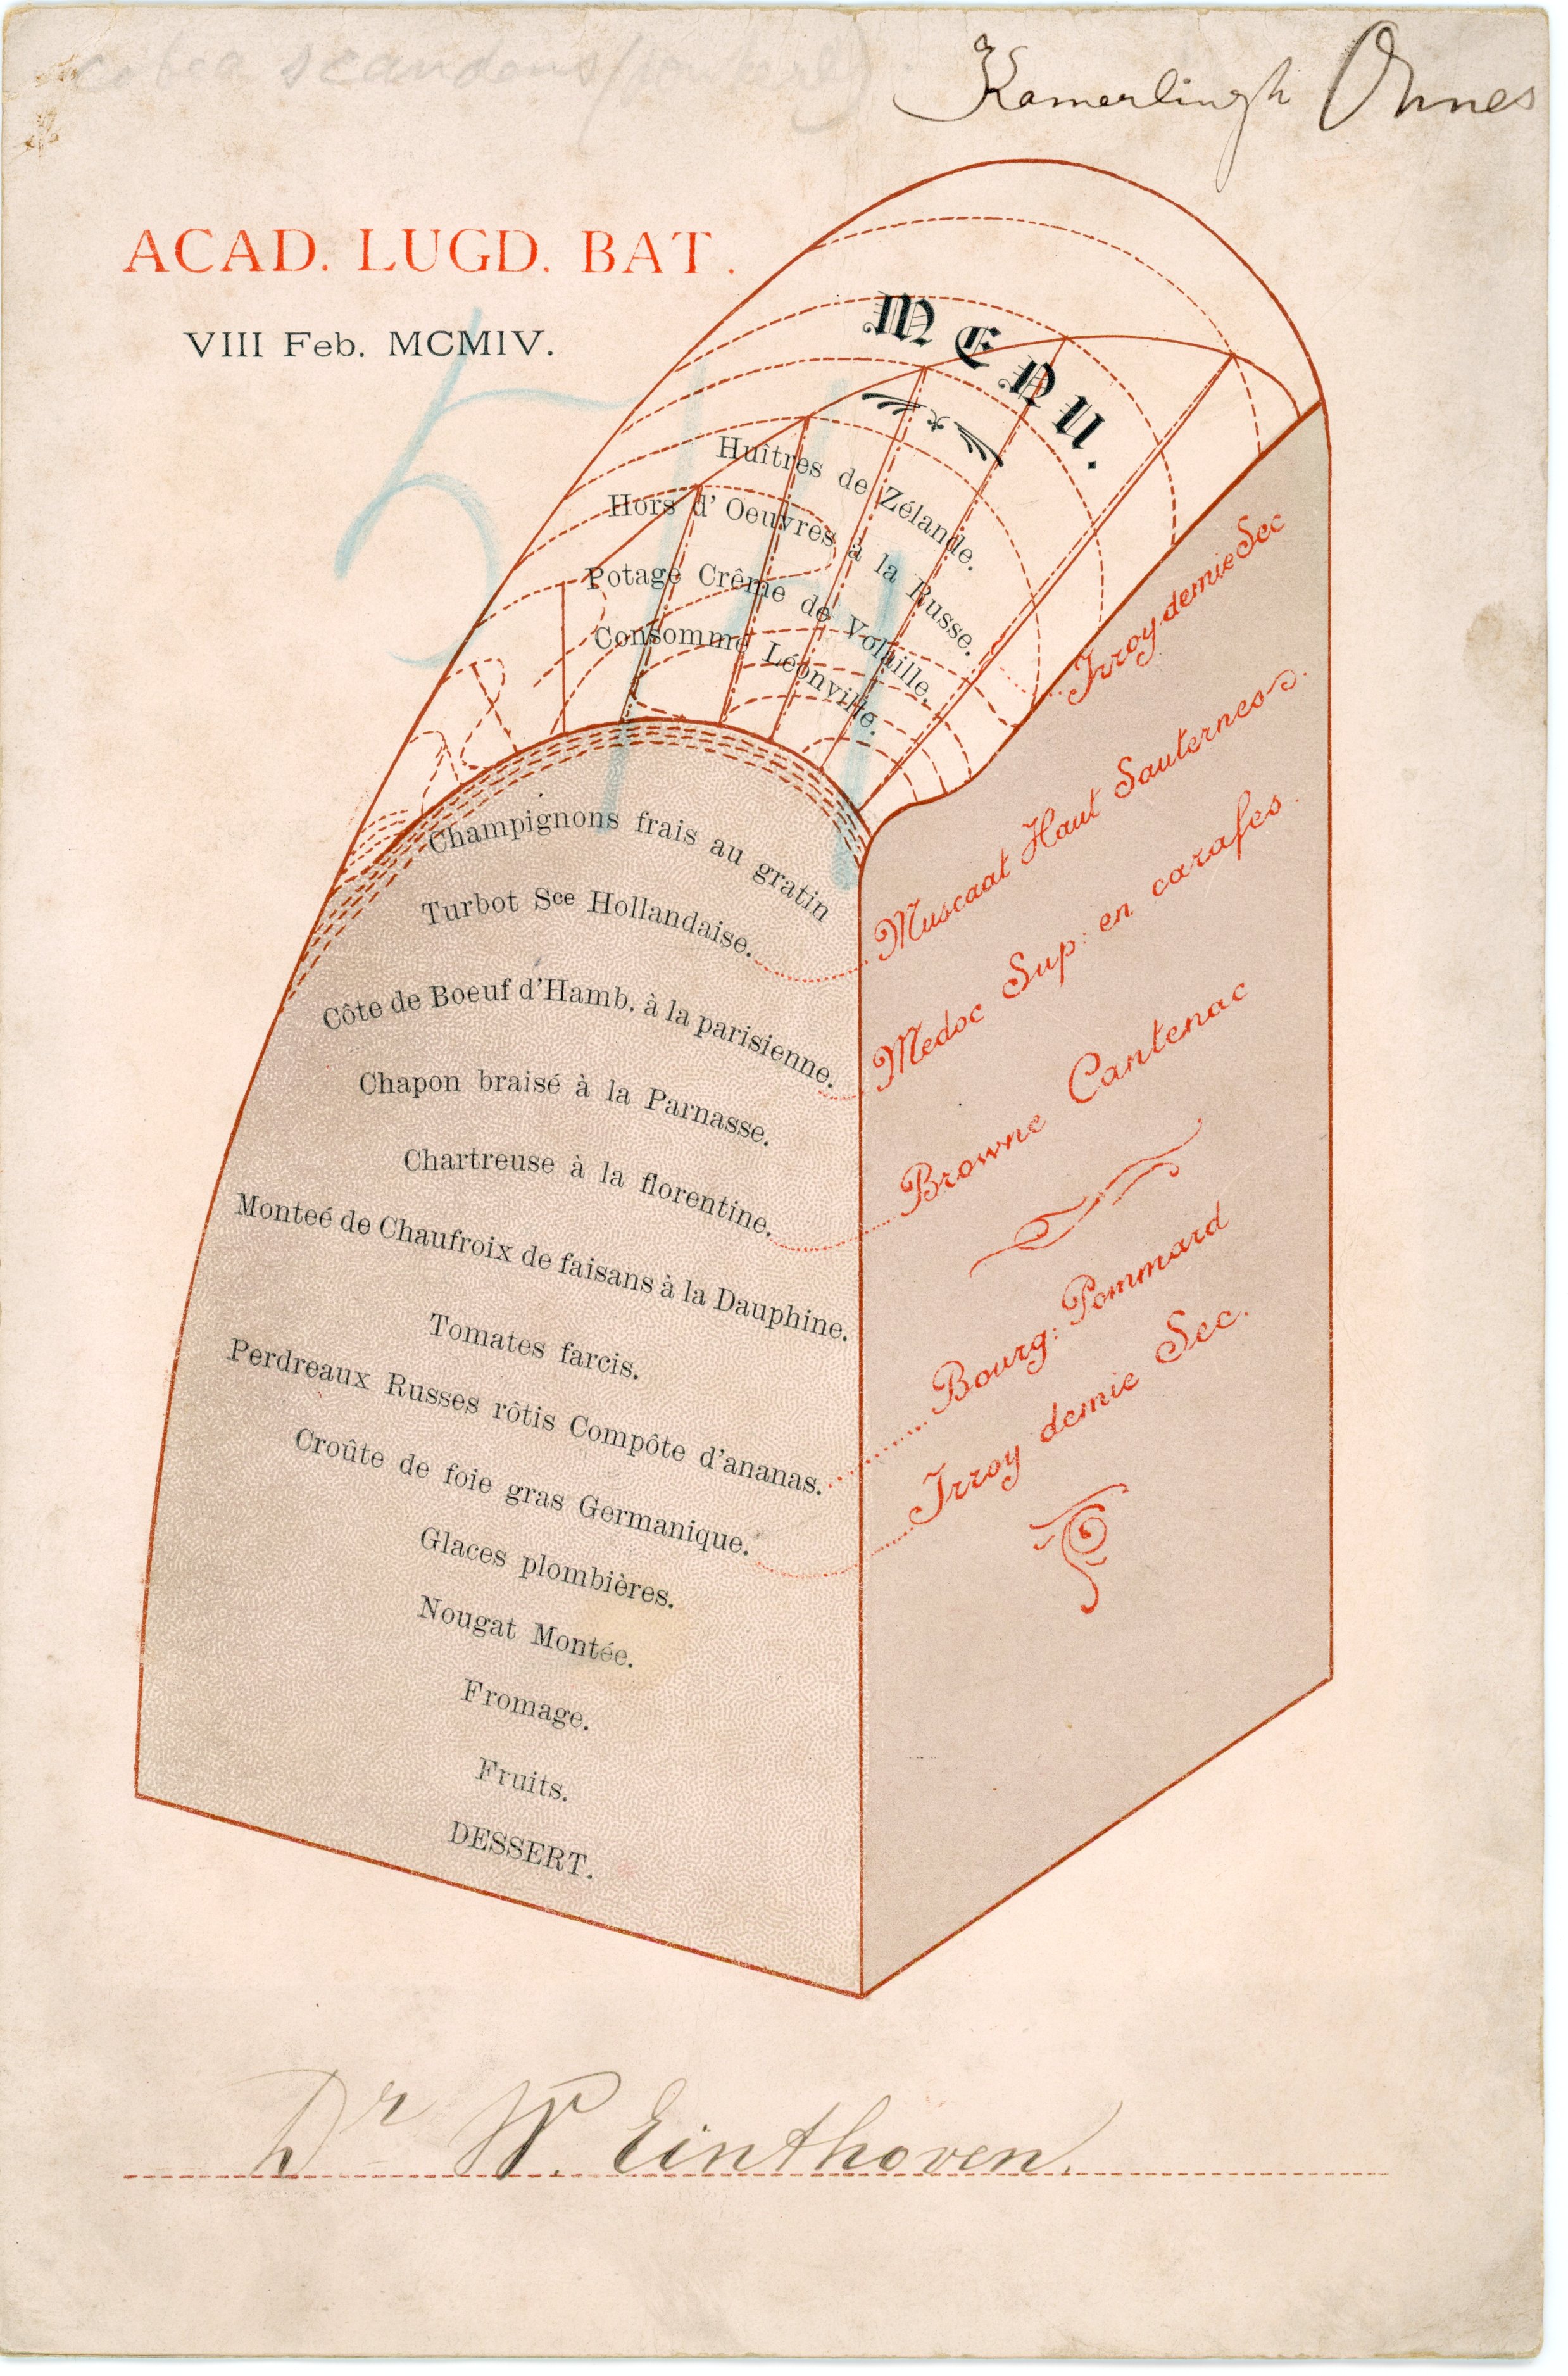 scandens
Kamerlingh Onnes
ACAD. LUGD. BAT.
VIII Feb. MCMIV.
MENU.
Huîtres de Zélande.
Hors d'Oeuvres à la Russe.
Potage Crême de Volaille.
Consommé Léonville.
Champignons frais au gratin
Turbot Sce Hollandaise.
Côte de Boeuf d'Hamb. à la parisienne.
Chapon braisé à la Parnasse.
Chartreuse à la florentine.
Monteé de Chaufroix de faisans à la Dauphine.
Tomates farcis.
Perdreaux Russes rôtis Compôte d'ananas.
Croûte de foie gras Germanique.
Glaces plombières.
Nougat Montée.
Fromage.
Fruits.
DESSERT.
Irroy demie Sec
Muscaat Haut Sauternes
Medoc Sup: en carafes.
Browne Cantenac
Bourg: Pommard
Irroy demie Sec.
Dr W. Einthoven.